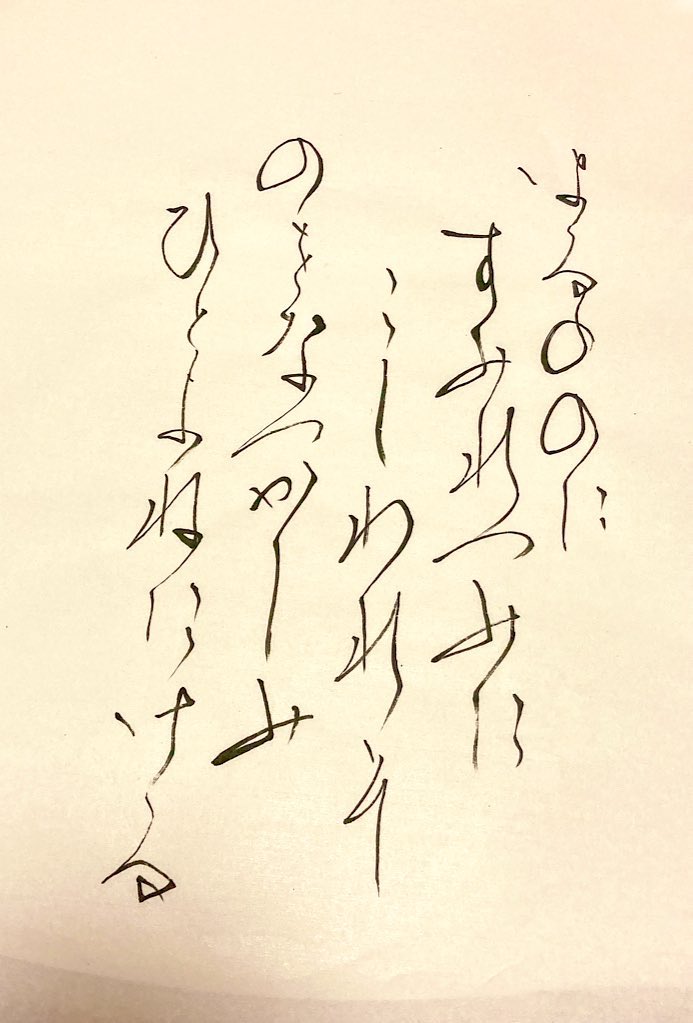 はるののに
すみれつみに
こしわれそ
のをなつかしみ
ひとよねにける